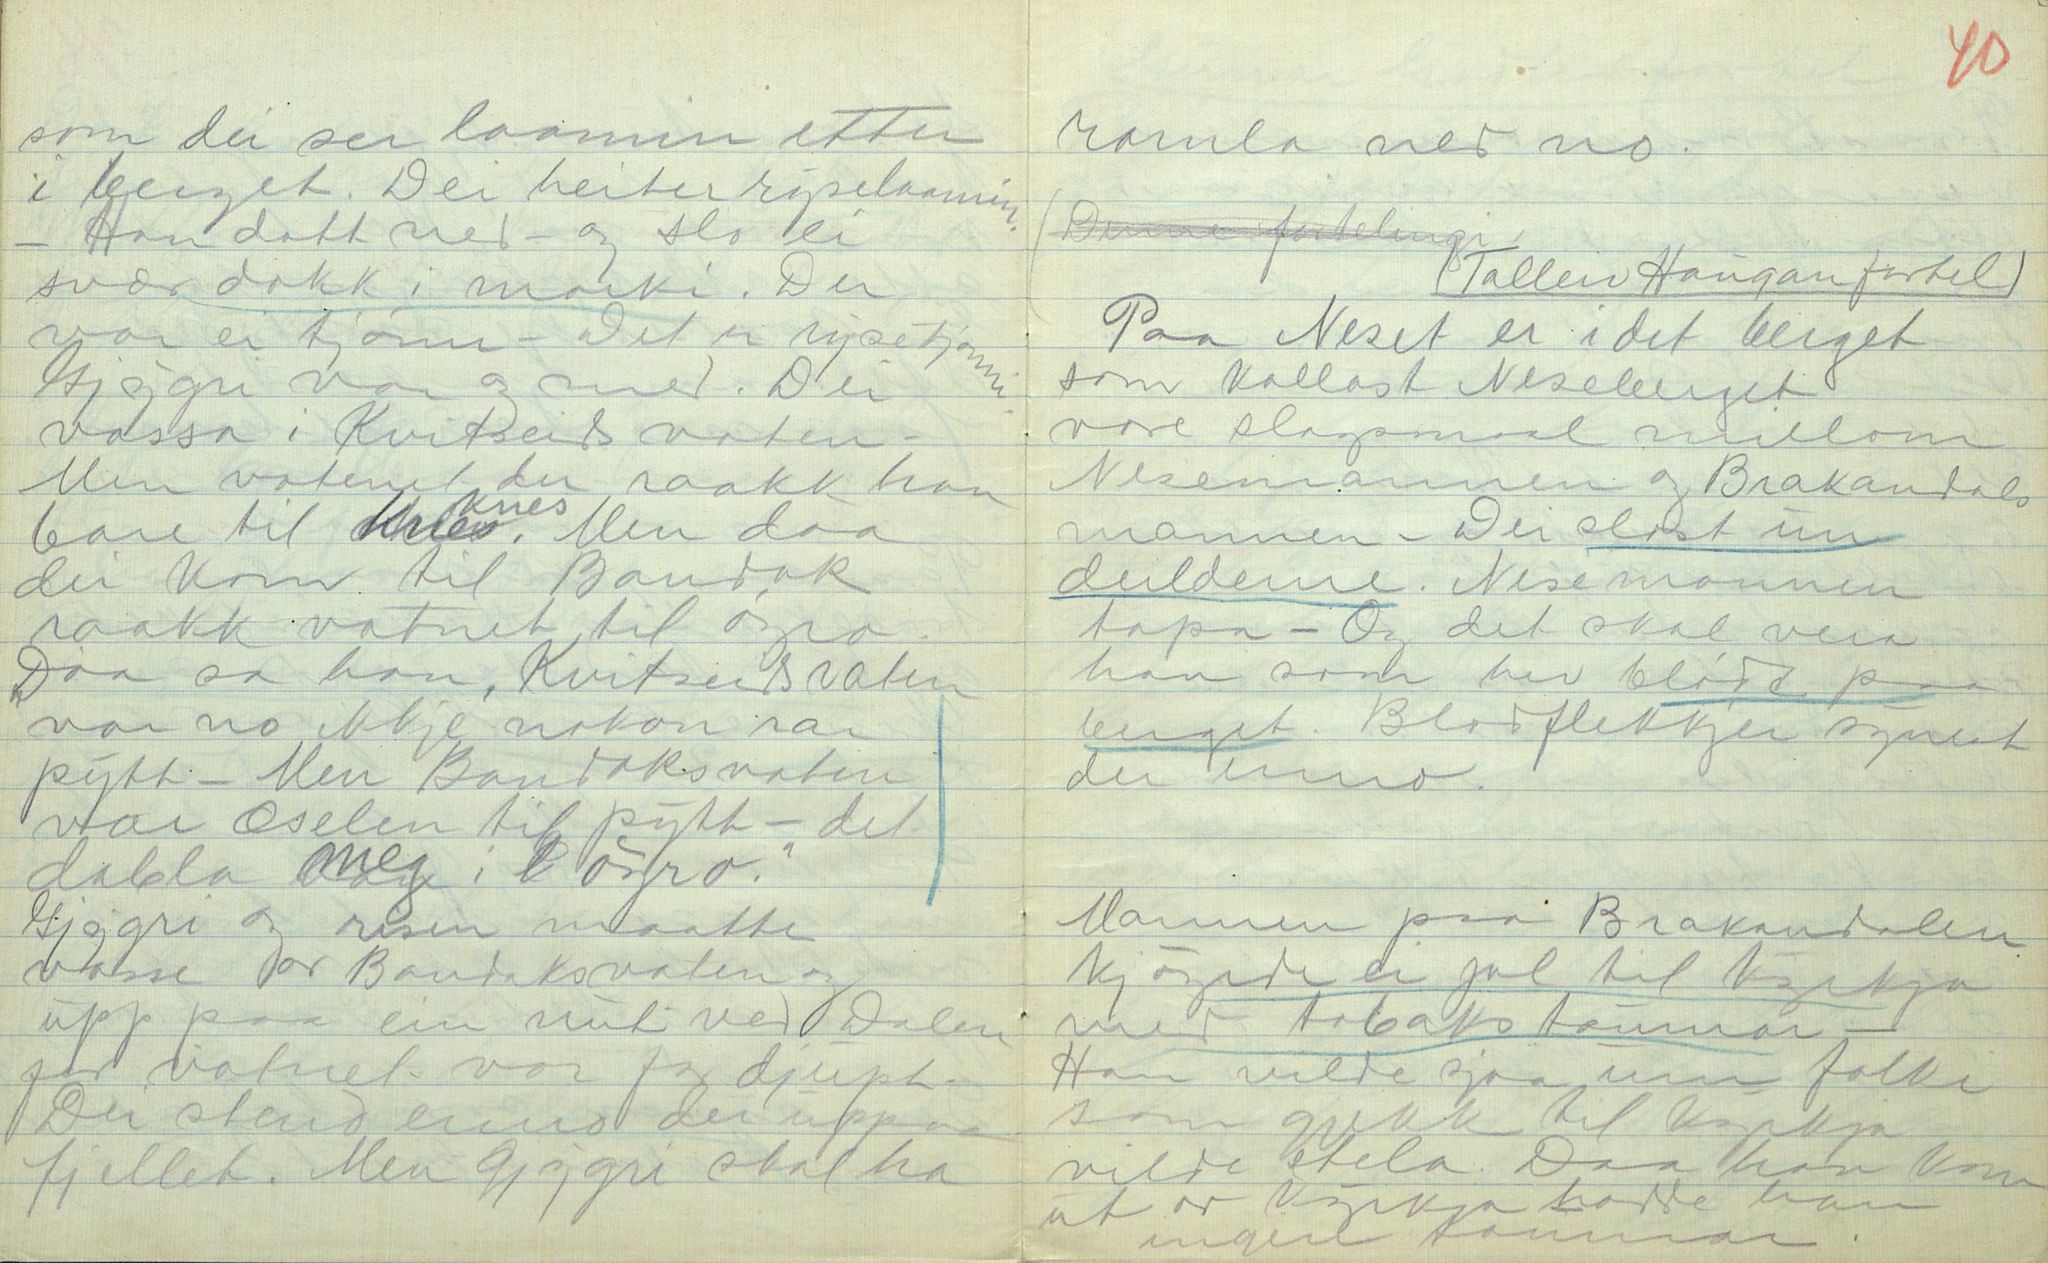 som dei ser laamin etter
i berget. Dei heiter rýselaamin.
- Han datt ned - og slo ei
svær dokk i marki. Der
var ei tjönn - Det er rýsetjönni.
Gjýgri var og med. Dei
vassa i Kvitseids vaten -
Men vatenet der raakk han
bare til knes. Men daa
dei kom til Bandak
raakk vatnet til öyro.
Daa sa han, "Kvitseidsvaten
var no ikkje nokon rar
pýtt - Men Bandaksvaten
var æselen til pýtt - det
dabla meg i öyro."
Gjýgri og risen maatte
vasse or Bandaksvaten og
upp paa ein nut ved Dalen
for vatnet var for djupt.
Dei stend enno der uppaa
fjellet. Men Gjýgri skal ha
40
ramla ned no.
Denne fortelingi
(Talleiv Haugan fortel)
Paa Neset er i det berget
som kallast Neseberget
vore slagsmaal millom
Nesemannen og Brakandals
mannen - Dei slost um
deilderne. Nesemannen
tapa - Og det skal vera
han som hev blödt paa
berget. Blodflekkjer synest
der enno.
Mannen paa Brakandalen
kjöyrde ei jol til kyrkja
med tobakstaumar -
Han vilde sjaa um folke
som gjekk til kyrkja
vilde stela. Daa han kom
ut or kyrkja hadde han
ingen taumar.